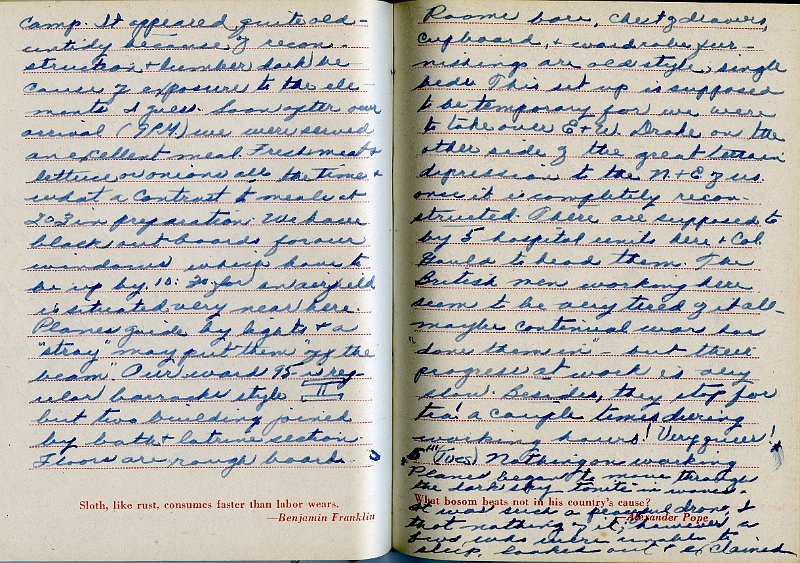 camp. It appeared quite old -
untidy because of recon-
struction & lumber dark be
cause of exposure to the ele-
ments I guess. Soon after our
arrival (9PM) we were served
an excellent meal. Fresh meat &
lettuce or onions all the time &
what a contrast to meals at
203 in preparation. We have
black out boards for our
windows which have to
be up by 10:30 for an airfield
is situated very near here.
Planes guide by lights & a
"stray" may put them "off the
beam". Our ward 95 is reg-
ular barracks style
but two building joined
by bath & latrine section.
Floors are rough board.
Sloth, like rust, consumes faster than labor wears.
—Benjamin Franklin
Rooms bare, chest of drawers,
cupboard, & wardrobe, fur-
nishings are old style, single
beds. This set up is supposed
to be temporary for we were
to take over E & W. Drake on the
other side of the great terrain
depression to the N & E of us
once it is completely recon-
structed. There are supposed to
by 5 hospital units here & Col.
Gould to head them. The
British men working here
seem to be very tired of it all -
maybe continual war has
"done them in" - but their
progress at work is very
slow. Besides, they stop for
tea! a couple times during
working hours! Very queer!
6th (Tues) Nothing on working
Planes began to move through
the dark sky in waves.
What bosom beats not in his country's cause?
—Alexander Pope
It was such a peaceful drone, I
thot nothing of it however a
few who were unable to
sleep, looked out & exclaimed